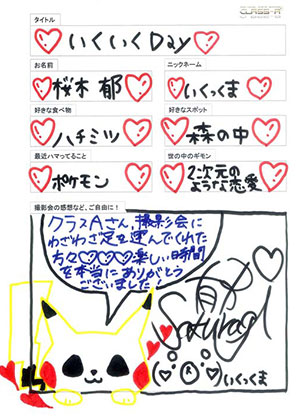 CLASS-A
タイトル
いくいくDay
お名前
ニックネーム
桜木 郁
いくっま
好きな食べ物
好きなスポット
ハチミツ
森の中
最近ハマってること
世の中のギモン
ポケモン
2次元の
ような恋愛
撮影会の感想など、ご自由に！
クラスAさん、撮影会に
わざわざ足を運んでくれた
方々♡♡♡♡楽しい時間
を本当にありがとう
ございました！
Sakuragi
いくっま